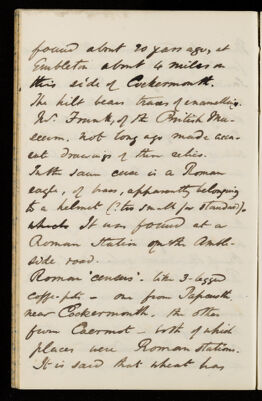 found about 20 years ago, at
Embleton about 4 miles on
this side of Cockermouth.
The hilt bears traces of enamelling.
Mr. Franks, of the British Mu-
seum, not long ago made accu-
rate drawings of these relics.
In the same case is a Roman
eagle, of brass, apparently belonging
to a helmet (? too small for standard).
It was found at a
Roman Station on the Amble-
side road.
Roman 'censers', like 3-legged
coffee-pots - one from Papcastle
near Cockermouth, the other
from Caermot - both of which
places were Roman stations.
It is said that wheat has